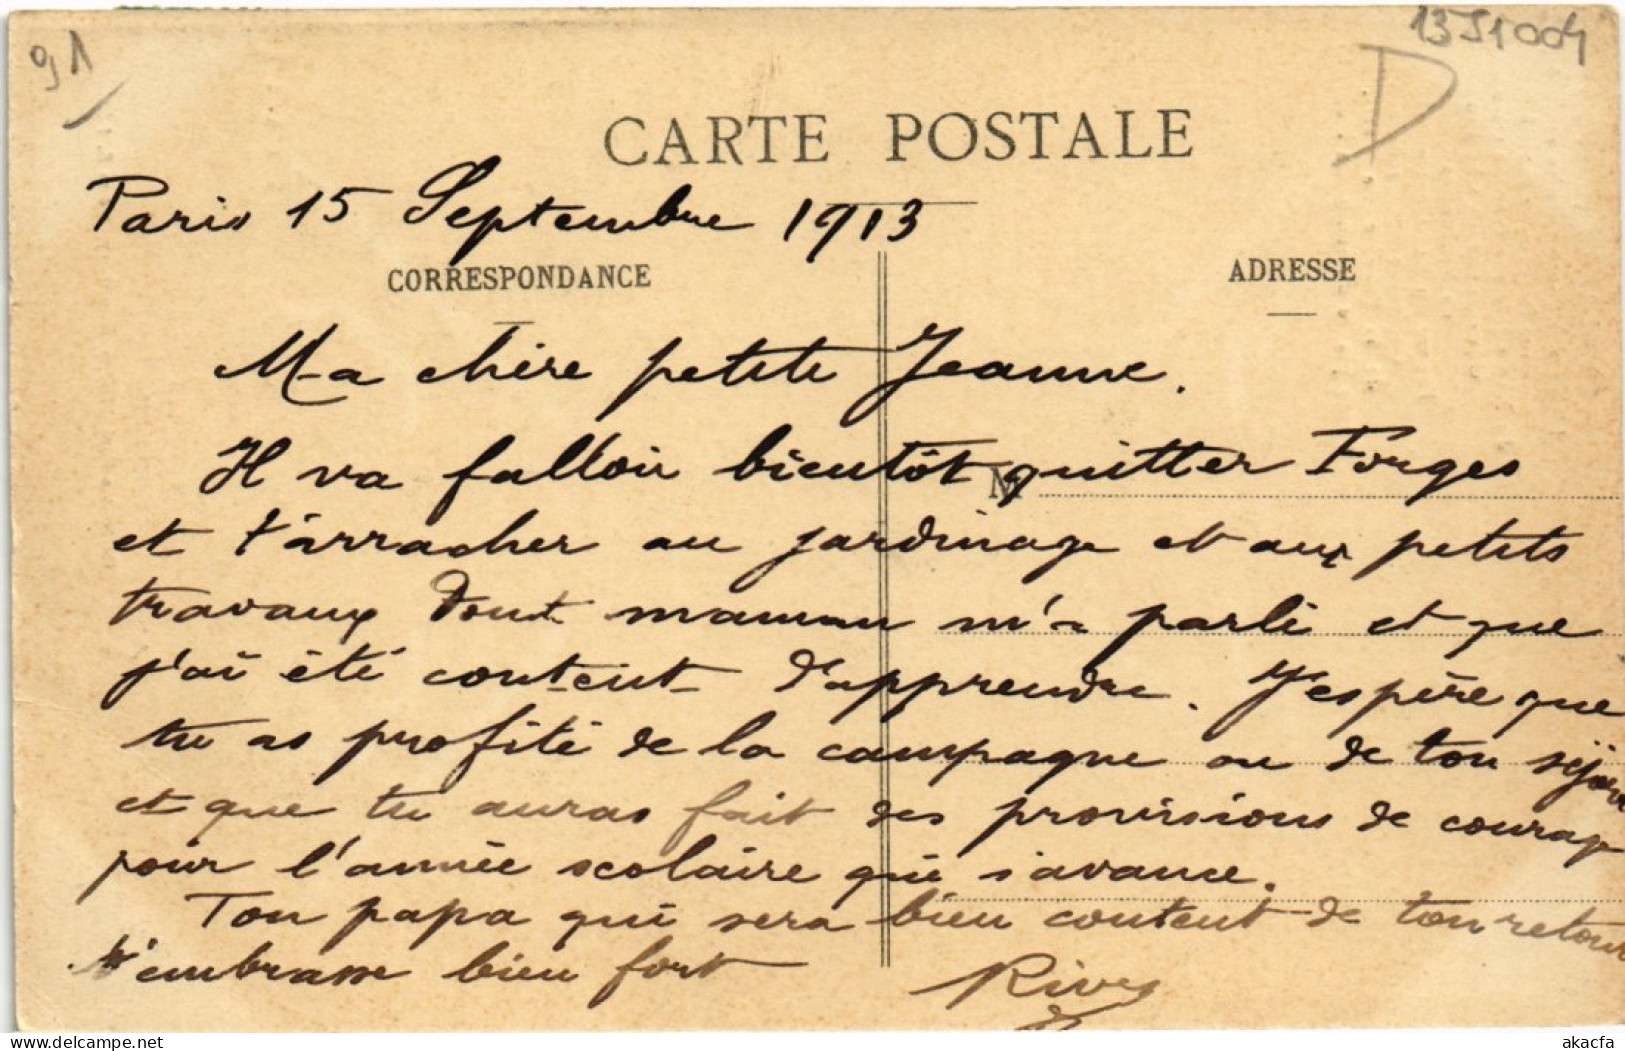 91
1351004
D
CARTE POSTALE
Paris 15 Septembre 1913
CORRESPONDANCE
ADRESSE
Ma chère petite Jeanne.
Il va falloir bientôt quitter Forges
M
et t'arracher au jardinage et aux petits
travaux dont maman m'a parlé et que
j'ai été content d'apprendre. J'espère que
tu as profité de la campagne ou de ton séjour
et que tu auras fait des provisions de courage
pour l'année scolaire qui s'avance.
Ton papa qui sera bien content de ton retour
t'embrasse bien fort
akacfa